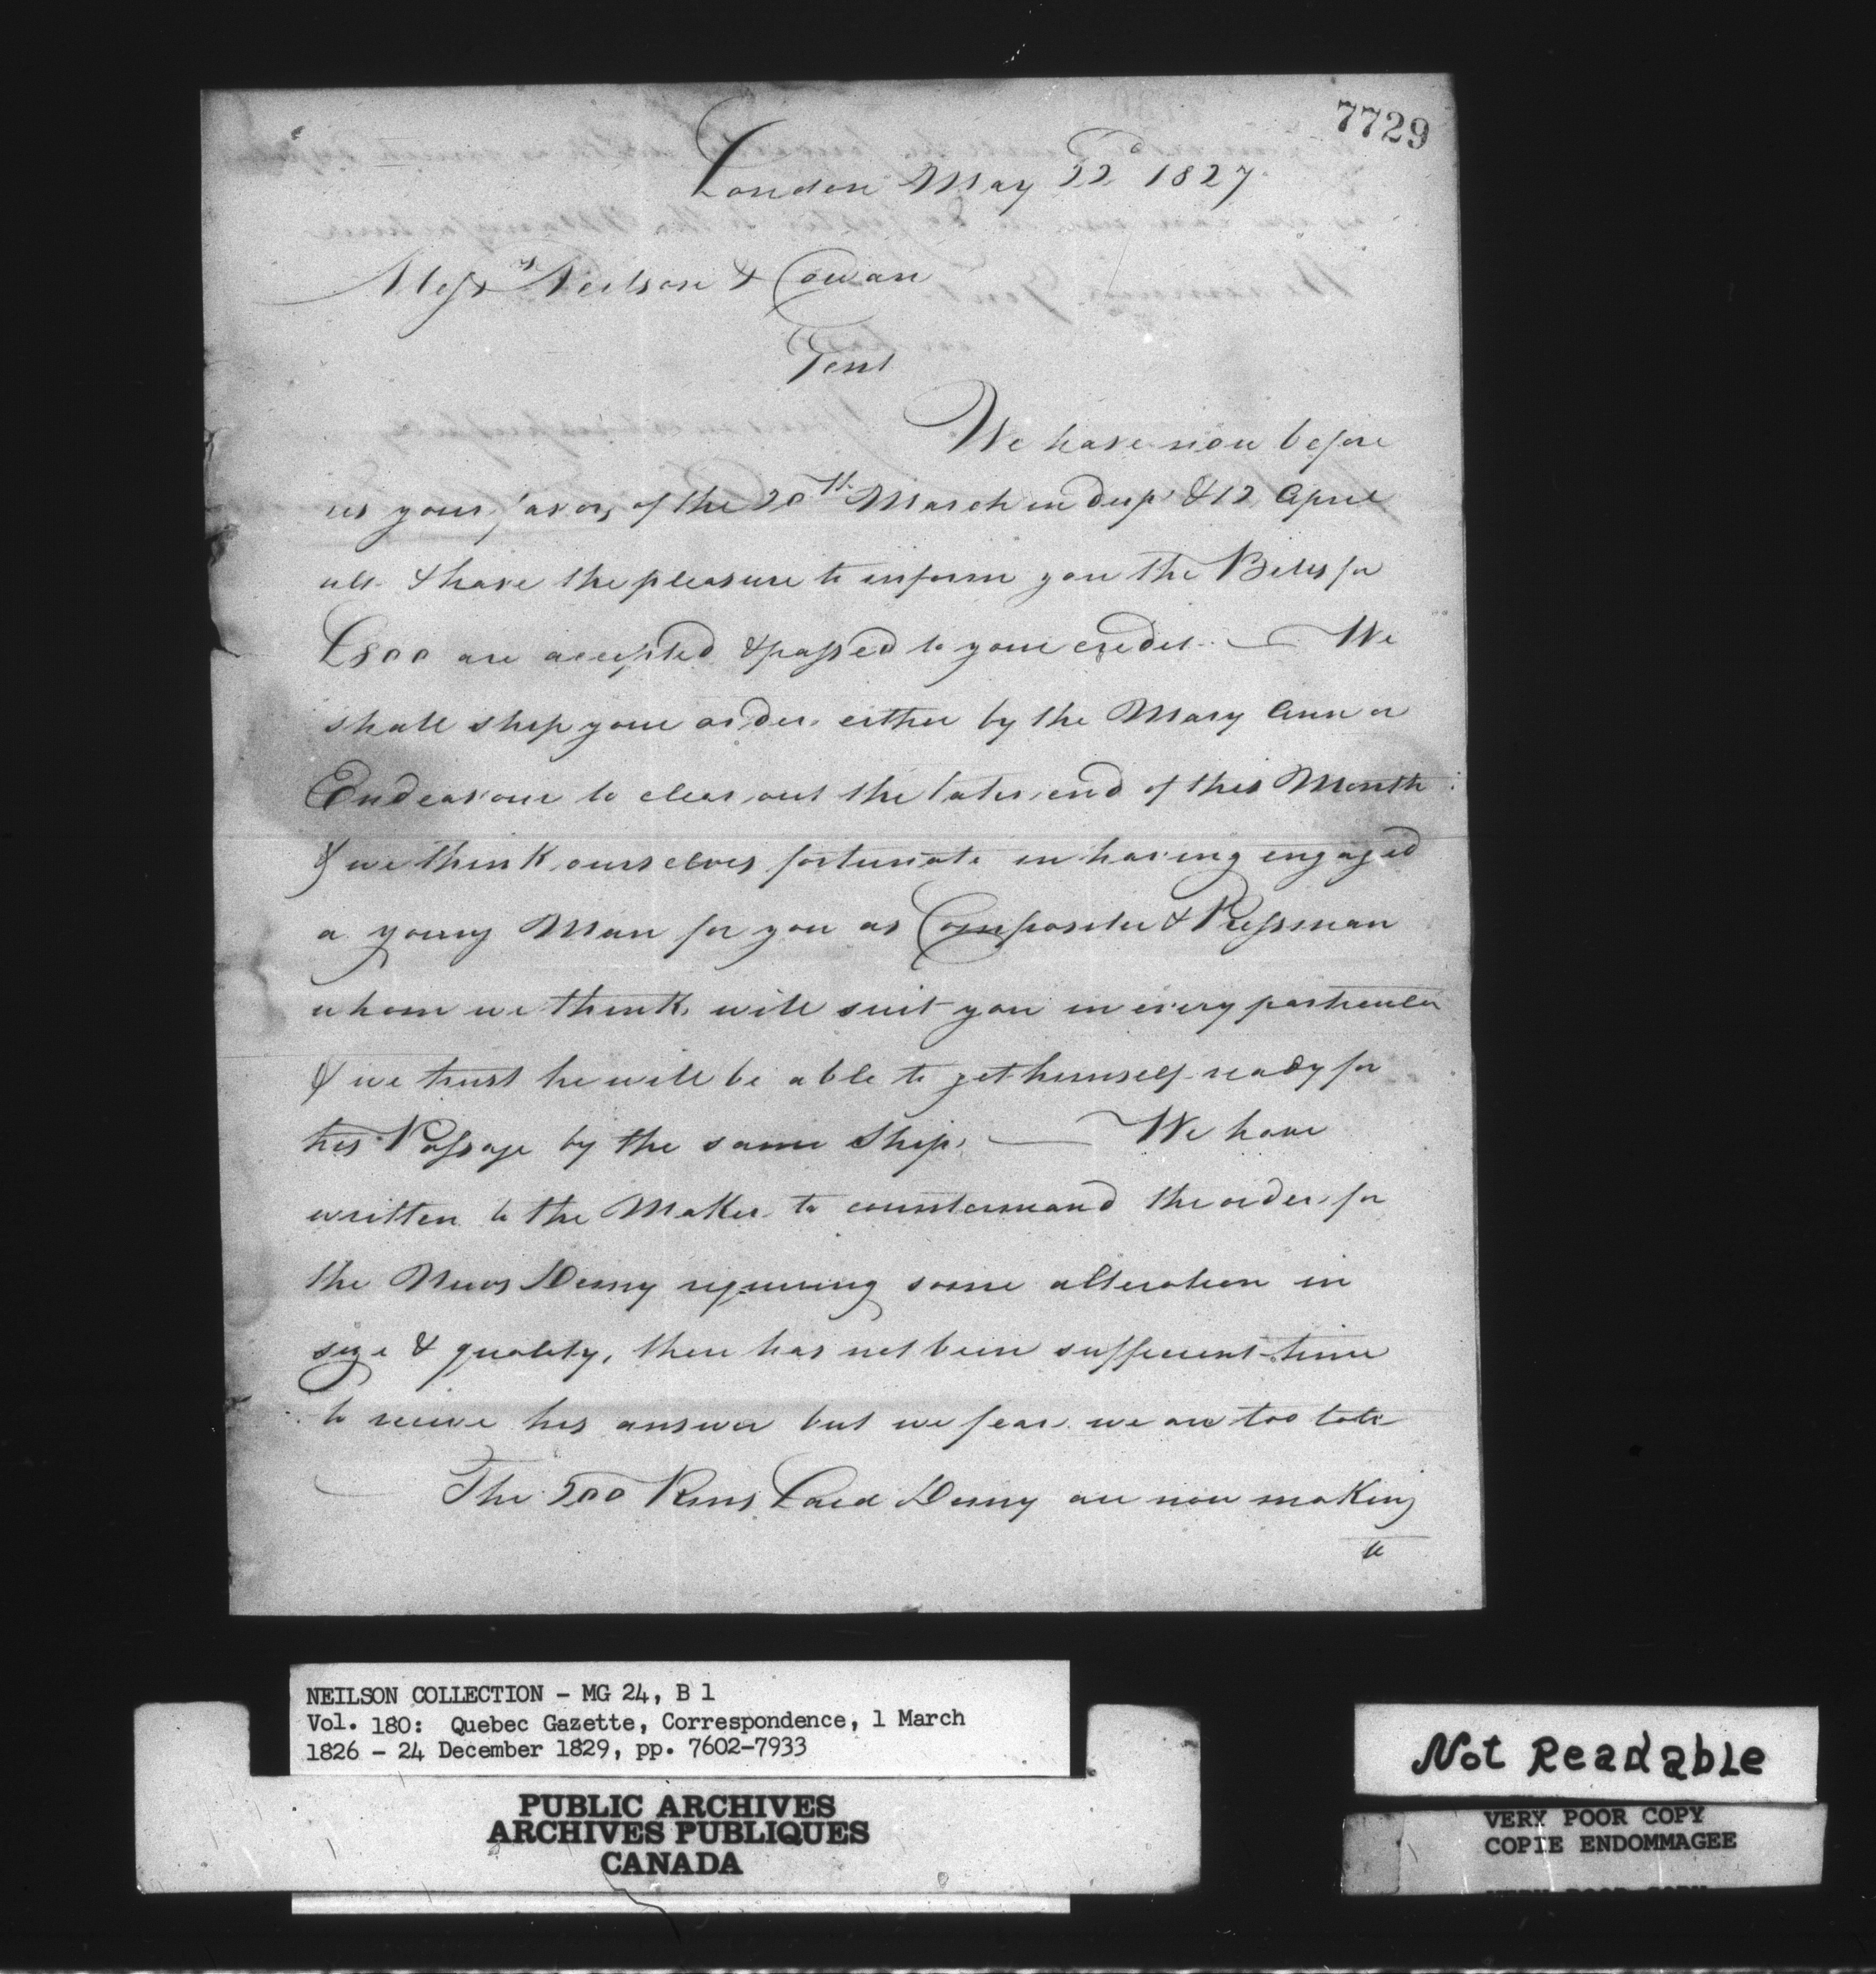 7729
London May 22d 1827
Messrs Neilson & Cowan
Gent
We have now before
us your favors of the 20th March in dup & 12 April
ult. & have the pleasure to inform you the Bills for
£800 are accepted & passed to your credit. — We
shall ship your order either by the Mary Ann or
Endeavour to clear out the later end of this Month
& we think ourselves fortunate in having engaged
a young Man for you as Compositor & Pressman
whom we think will suit you in every particular
& we trust he will be able to get himself ready for
his Passage by the same Ship. — We have
written to the Maker to countermand the order for
the News Demy requiring some alteration in
size & quality, there has not been sufficient time
to receive his answer but we fear we are too late
The 500 Rms Laid Demy are now making
NEILSON COLLECTION - MG 24, B 1
Vol. 180: Quebec Gazette, Correspondence, 1 March
1826 - 24 December 1829, pp. 7602-7933
PUBLIC ARCHIVES
ARCHIVES PUBLIQUES
CANADA
Not Readable
VERY POOR COPY
COPIE ENDOMMAGEE